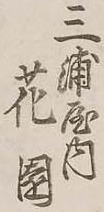 三浦屋内
花園